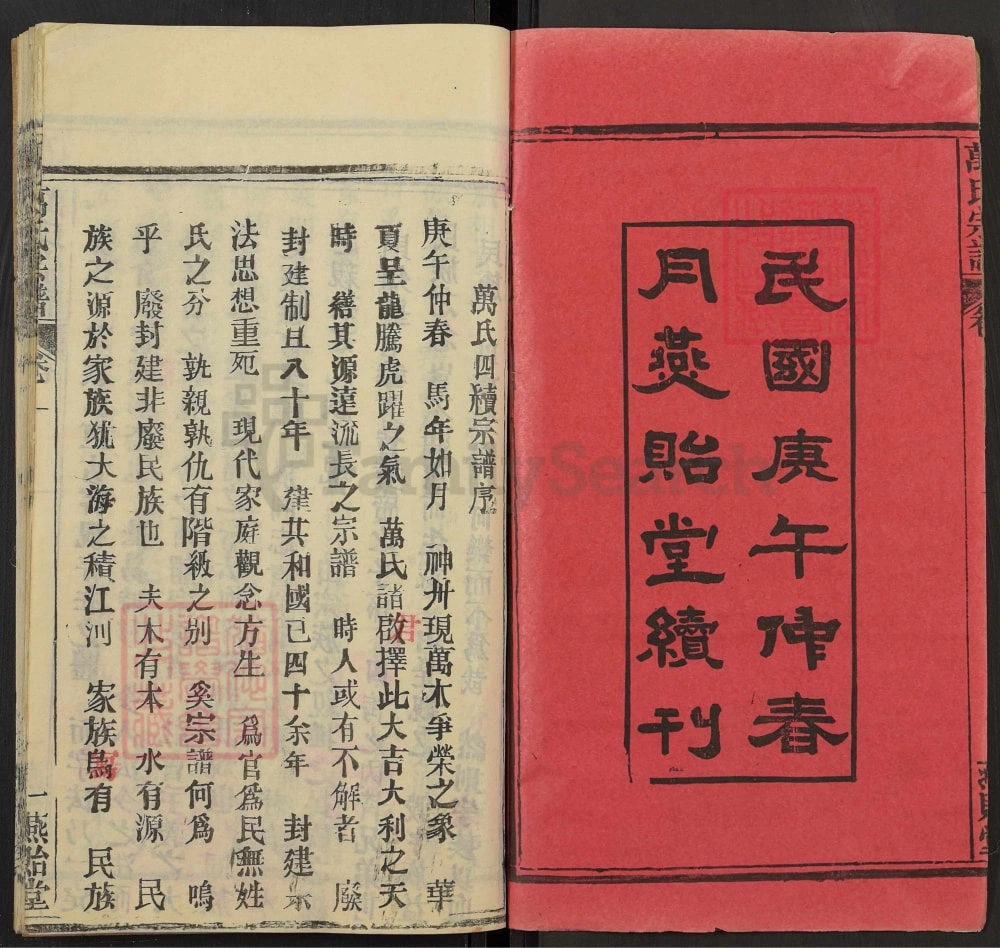 民國庚午仲春
月燕貽堂續刊
萬氏宗譜
萬氏四續宗譜序
庚午仲春　馬年如月　神州現萬木爭榮之象　華
夏呈龍騰虎躍之氣　萬氏諸君啟擇此大吉大利之天
時　繕其源遠流長之宗譜　時人或有不解者　廢
封建制且八十年　建共和國已四十余年　封建宗
法思想重死　現代家庭觀念方生　爲官爲民無姓
氏之分　孰親孰仇有階級之别　奚宗譜何爲　嗚
乎　廢封建非廢民族也　夫木有本　水有源　民
族之源於家族犹大海之積江河　家族焉有　民族
萬氏宗譜
卷一
一
燕貽堂
FamilySearch